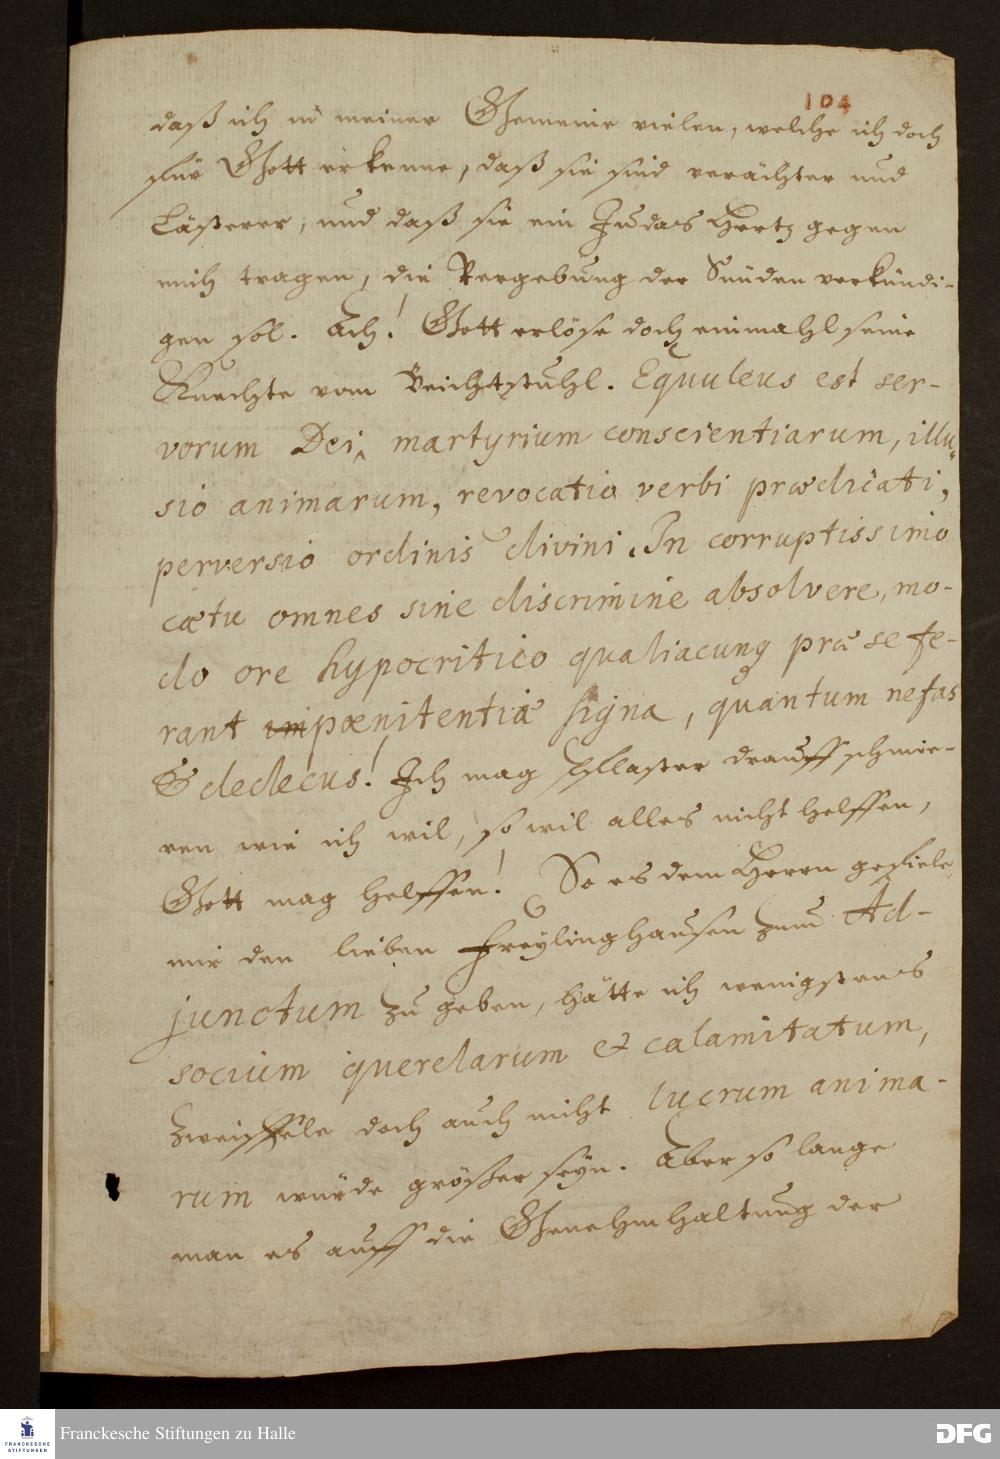 104
daß ich in meiner Gemeine vielen, welche ich doch
für Gott erkenne, daß sie sind verächter und
Lästerer, und daß sie ein Judas Hertz gegen
mich tragen, die Vergebung der Sünden verkündi-
gen sol. Ach! Gott erlöse doch einmahl seine
Knechte vom Beichtstuhl. Equuleus est ser-
vorum Dei, martyrium conscientiarum, illu-
sio animarum, revocatio verbi prædicati,
perversio ordinis divini. In corruptissimo
cœtu omnes sine discrimine absolvere, mo-
do ore hypocritico qualiacunq præ se fe-
rant pœnitentiæ signa, quantum nefas
& dedecus! Ich mag Pflaster drauff schmie-
ren wie ich wil, so wil alles nicht helffen,
Gott mag helffen! So es dem Herrn gefiele,
mir den lieben Freylinghausen zum Ad-
junctum zu geben, hätte ich wenigstens
socium querelarum et calamitatum,
zweiffele doch auch nicht lucrum anima-
rum würde größer seyn. Aber so lange
man es auff die Genehmhaltung der
Franckesche Stiftungen zu Halle
DFG
FRANCKESCHE
STIFTUNGEN